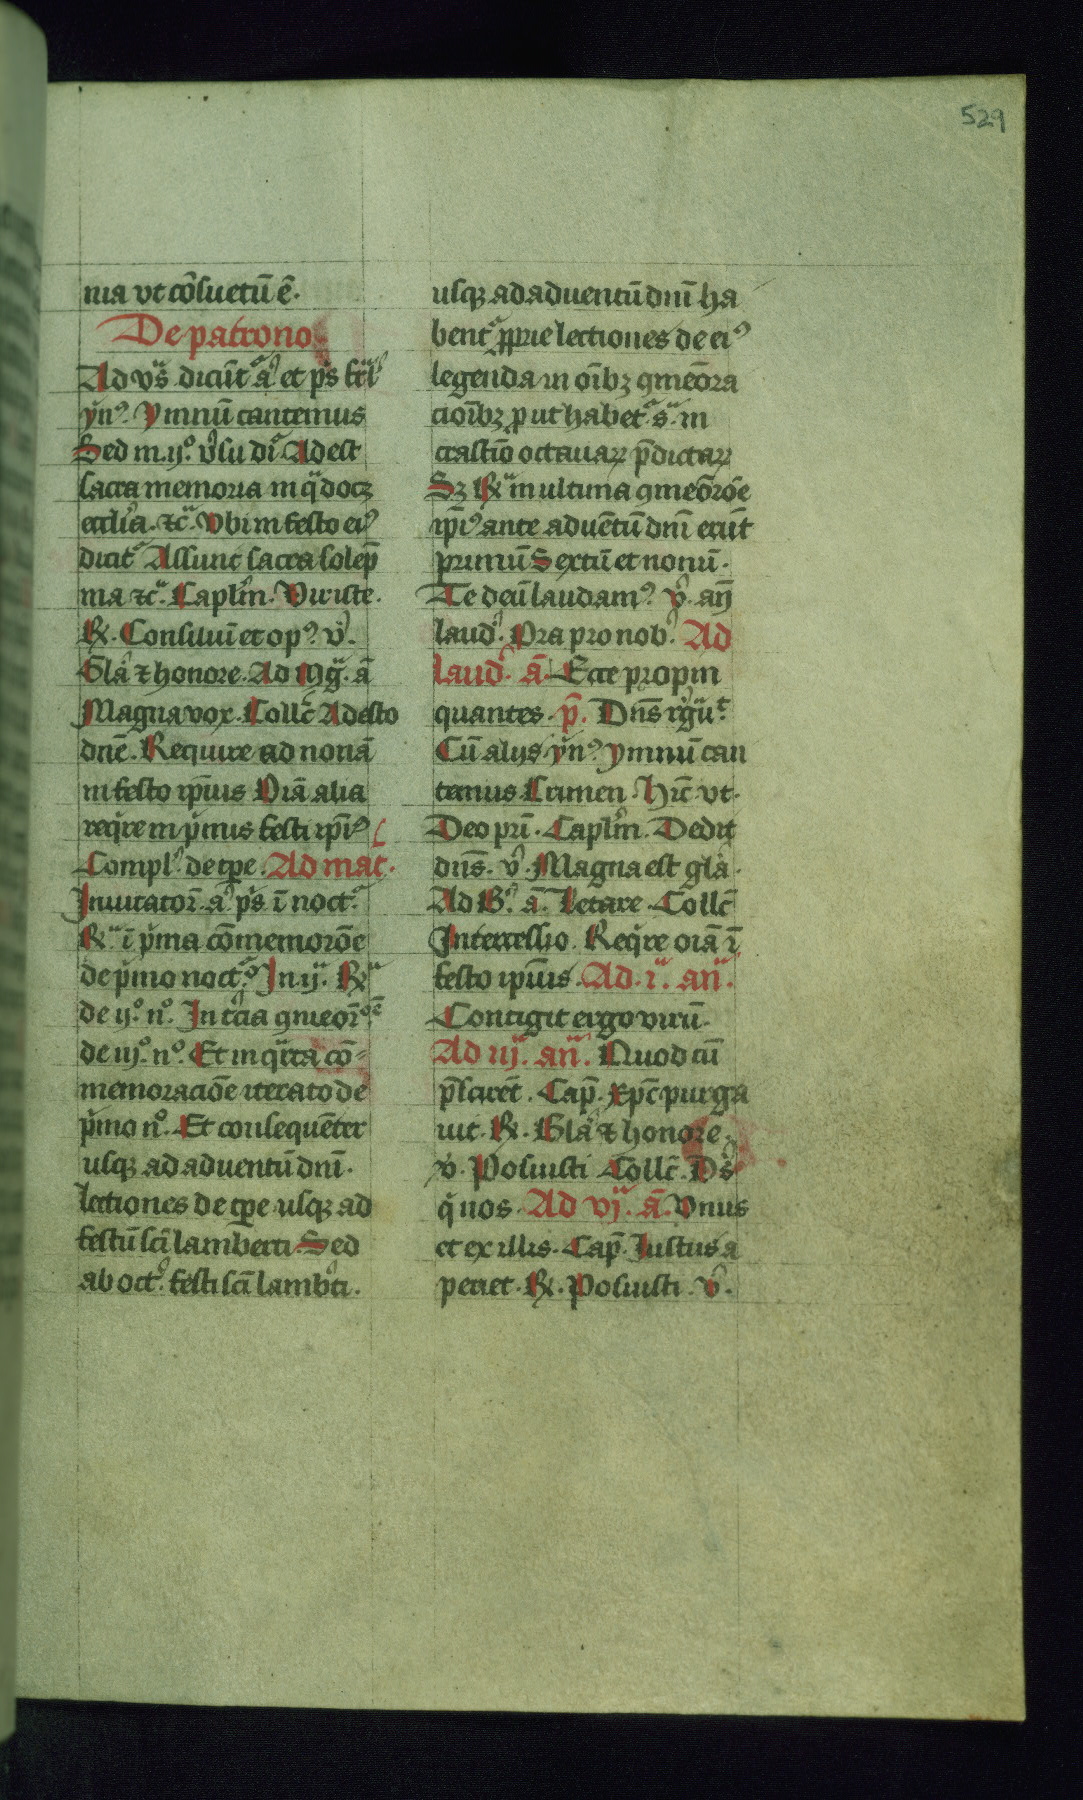 529
nia vt cōsuetū ē.
De patrono
Ad vs̄. dicūt᷑ a᷑ et ps̄ fr̄l
yn̄ꝰ. Ymnū cantemus
Sed in .ijº. v̉su dr̄. Adest
sacra memoria in q̄ docꝫ
eccl̄ia. ⁊c̄. Vbi in festo eiꝰ
dicit᷑ Assunt sacra solep̄
nia ⁊c̄. Capl̄m. Vir iste.
℟. Consiliū et opꝰ. v̉.
Gl̄a ⁊ honore. Ad Mg̅. ā
Magna vox. Coll̄c Adesto
dn̄e. Require ad nonā
in festo ip̄ius Oīa alia
req̉re in p̉mis festi ip̄iꝰ
Compl̉. de tp̄e. Ad mat̄.
Inuitator̄. a᷑ ps̄ ī noct᷑.
℟ ī p̉ma cōmemorōe
de p̉mo noct᷑º. In .ij. ℟
de ijº. nº. In t̉cia ꝯmeor̄ºᵉ
de iijº. nº. Et in q̄rta cō-
memoraciōe iterato de
p̉mo nº. Et consequēter
usqꝫ ad aduentū dnī.
lectiones de tp̄e usqꝫ ad
festū sc̄i lamberti. Sed
ab oct᷑. festi sc̄i lamb̉ti.
usqꝫ ad aduentū dnī ha
bent᷑ ꝓprie lectiones de eiꝰ
legenda in oībꝫ ꝯmeōra
cioībꝫ ꝓ ut habet᷑. s̄. in
crastīo octauaꝝ p̄dictaꝝ
Sꝫ ℟ in ultima ꝯmeōrōe
ip̄iꝰ ante aduētū dnī erūt
primū Sextū et nonū.
Te deū laudamꝰ. v̉. an̄
laud̉. Ora pro nob̉. Ad
laud̉. ā. Ecce propin
quantes. p̄. Dn̄s rgū᷑.
Cū alijs ynꝰ. ymnū can
temus Crimen. Hīc vt.
Deo pri̅. Capl̄m. Dedit
dn̄s. v̉. Magna est gl̄a.
Ad B̉. ā. Letare. Coll̄c
Intercessio. Req̉re oīa ī
festo ip̄ius. Ad. i. an̄.
Contigit ergo virū.
Ad iij. an̄. Quod cū
p̄sciret. Cap̄. xp̄c purga
uit. ℟. Gl̄a ⁊ honore.
v̉. Posuisti Coll̄c. Ds̄
q̉ nos. Ad vj. ā. Vnus
et ex illis. Cap̄. Iustus a
periet. ℟. Posuisti. v̉.